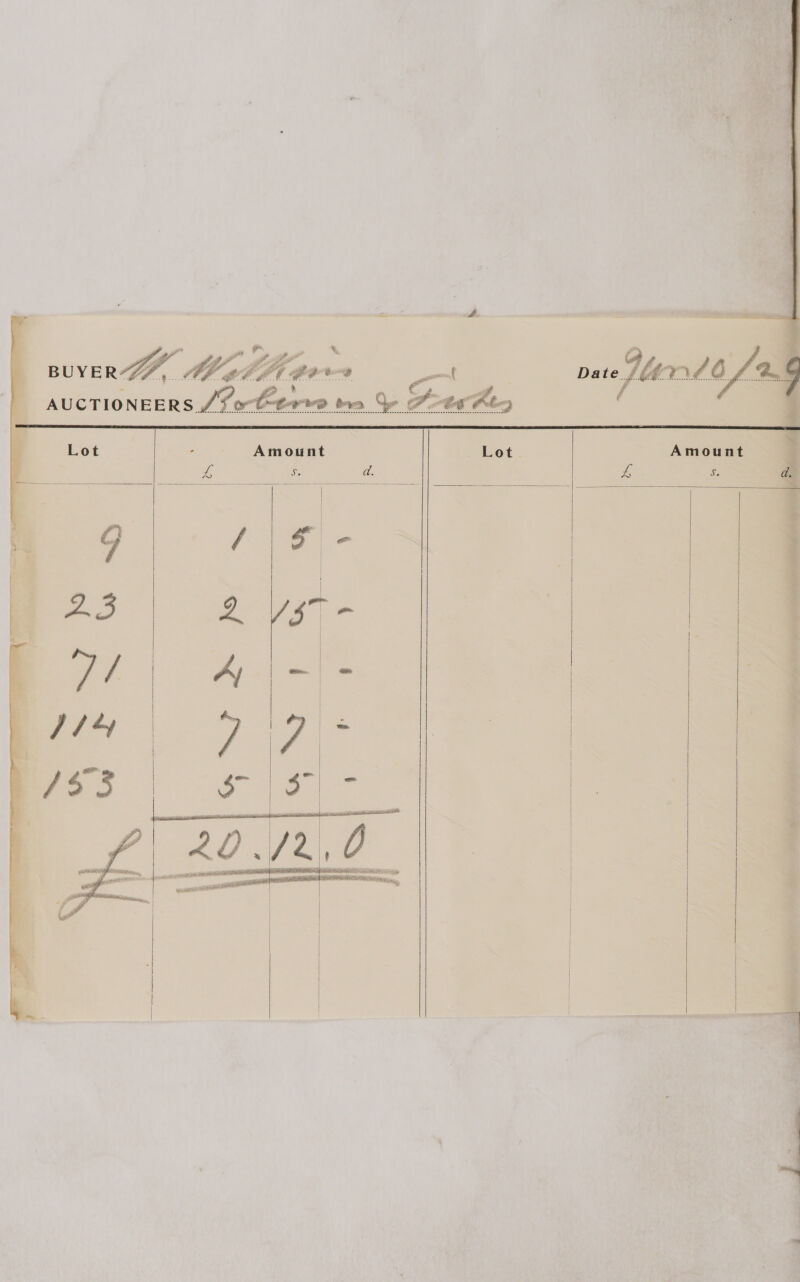 BUYER W. Williams Date June 26/29
AUCTIONEERS Robinson & Fisher
Lot Amount Lot Amount
£ s. d. £ s. d.
9 1 5 -
23 2 15 -
71 4 - -
114 7 7 -
153 5 5 -
£ 20.12.0